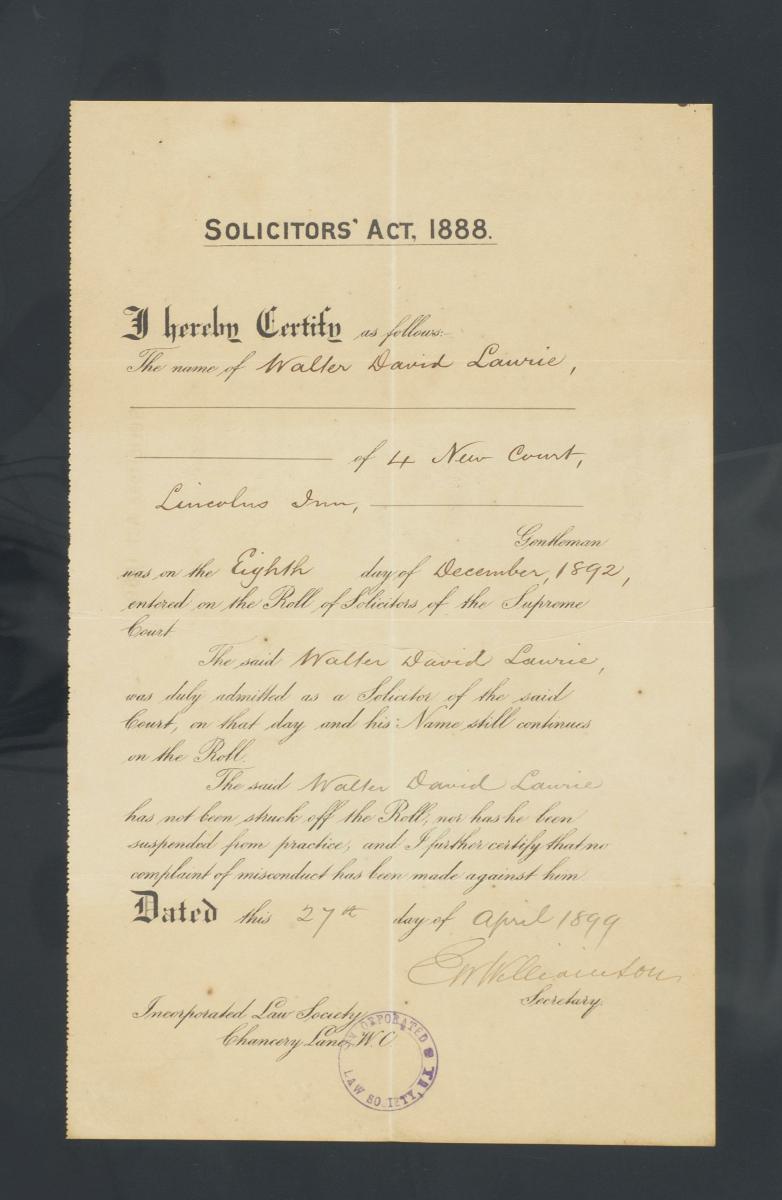 SOLICITORS' ACT, 1888.
I hereby Certify as follows:-
The name of Walter David Laurie,
of 4 New Court,
Lincolns Inn,
Gentleman
was on the Eighth day of December, 1892,
entered on the Roll of Solicitors of the Supreme
Court
The said Walter David Laurie,
was duly admitted as a Solicitor of the said
Court, on that day and his Name still continues
on the Roll.
The said Walter David Laurie
has not been struck off the Roll, nor has he been
suspended from practice, and I further certify that no
complaint of misconduct has been made against him
Dated this 27th day of April 1899
E W Williamson
Secretary.
Incorporated Law Society
Chancery Lane, W.C
INCORPORATED
LAW SOCIETY,